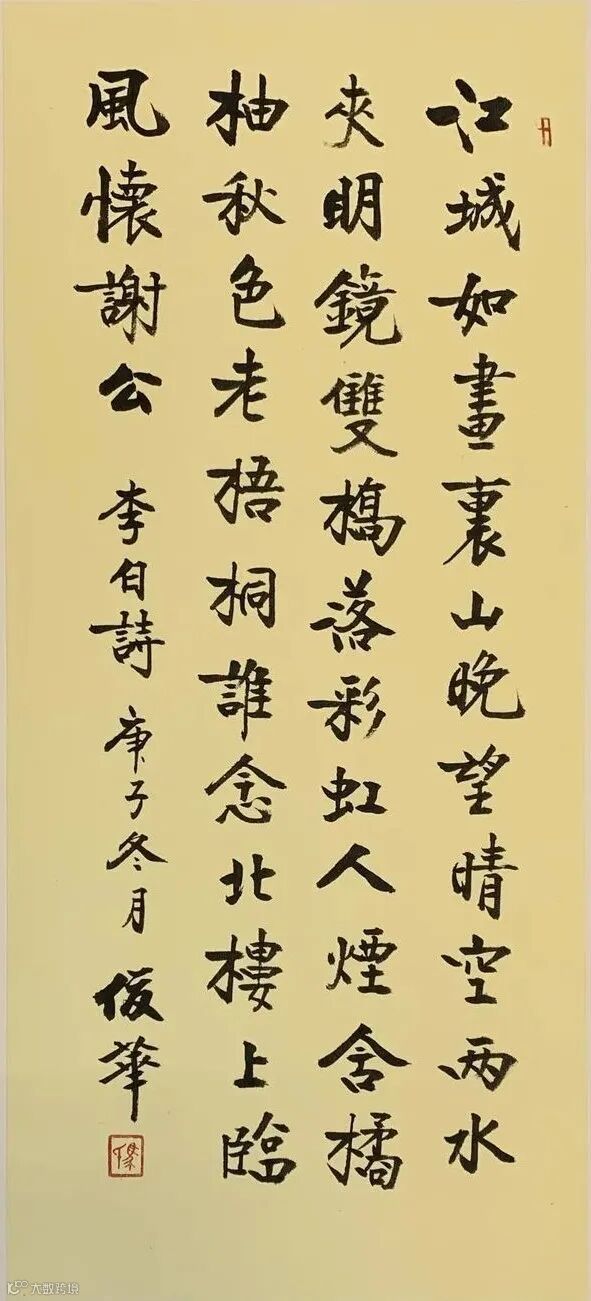 江城如畫裏山晚望晴空两水
夾明鏡雙橋落彩虹人煙含橘
柚秋色老梧桐誰念北樓上臨
風懷謝公 李白詩 庚子冬月 俊華
大数跨境